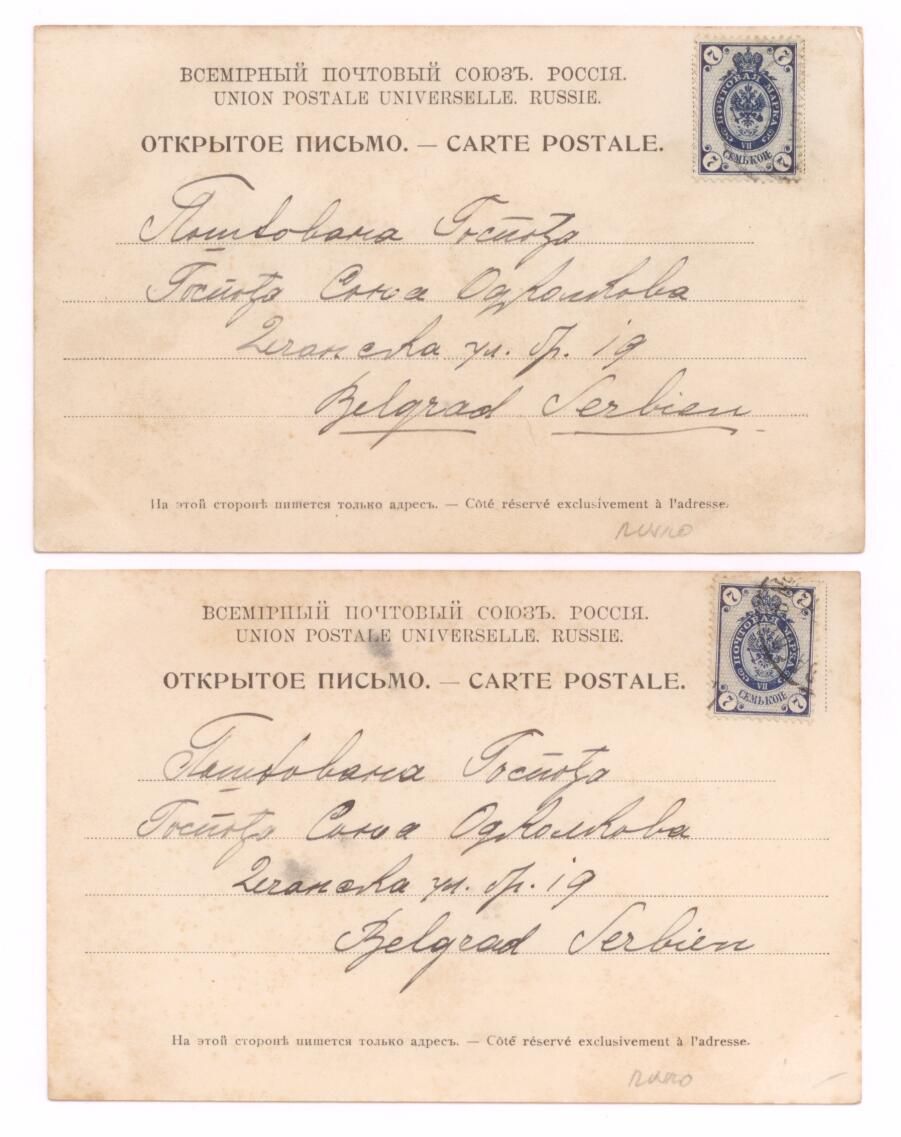 ВСЕМІРНЫЙ ПОЧТОВЫЙ СОЮЗЪ. РОССІЯ.
UNION POSTALE UNIVERSELLE. RUSSIE.
ОТКРЫТОЕ ПИСЬМО. — CARTE POSTALE.
7 7
ПОЧТОВАЯ МАРКА
VII
СЕМЬ КОП.
7 7
Поштована Госпођа
Госпођа Соња Оджолкова
Дечанска ул. бр. 19
Belgrad Serbien
На этой сторонѣ пишется только адресъ. — Côté réservé exclusivement à l'adresse.
ВСЕМІРНЫЙ ПОЧТОВЫЙ СОЮЗЪ. РОССІЯ.
UNION POSTALE UNIVERSELLE. RUSSIE.
ОТКРЫТОЕ ПИСЬМО. — CARTE POSTALE.
7 7
ПОЧТОВАЯ МАРКА
VII
СЕМЬ КОП.
7 7
Поштована Госпођа
Госпођа Соња Оджолкова
Дечанска ул. бр. 19
Belgrad Serbien
На этой сторонѣ пишется только адресъ. — Côté réservé exclusivement à l'adresse.